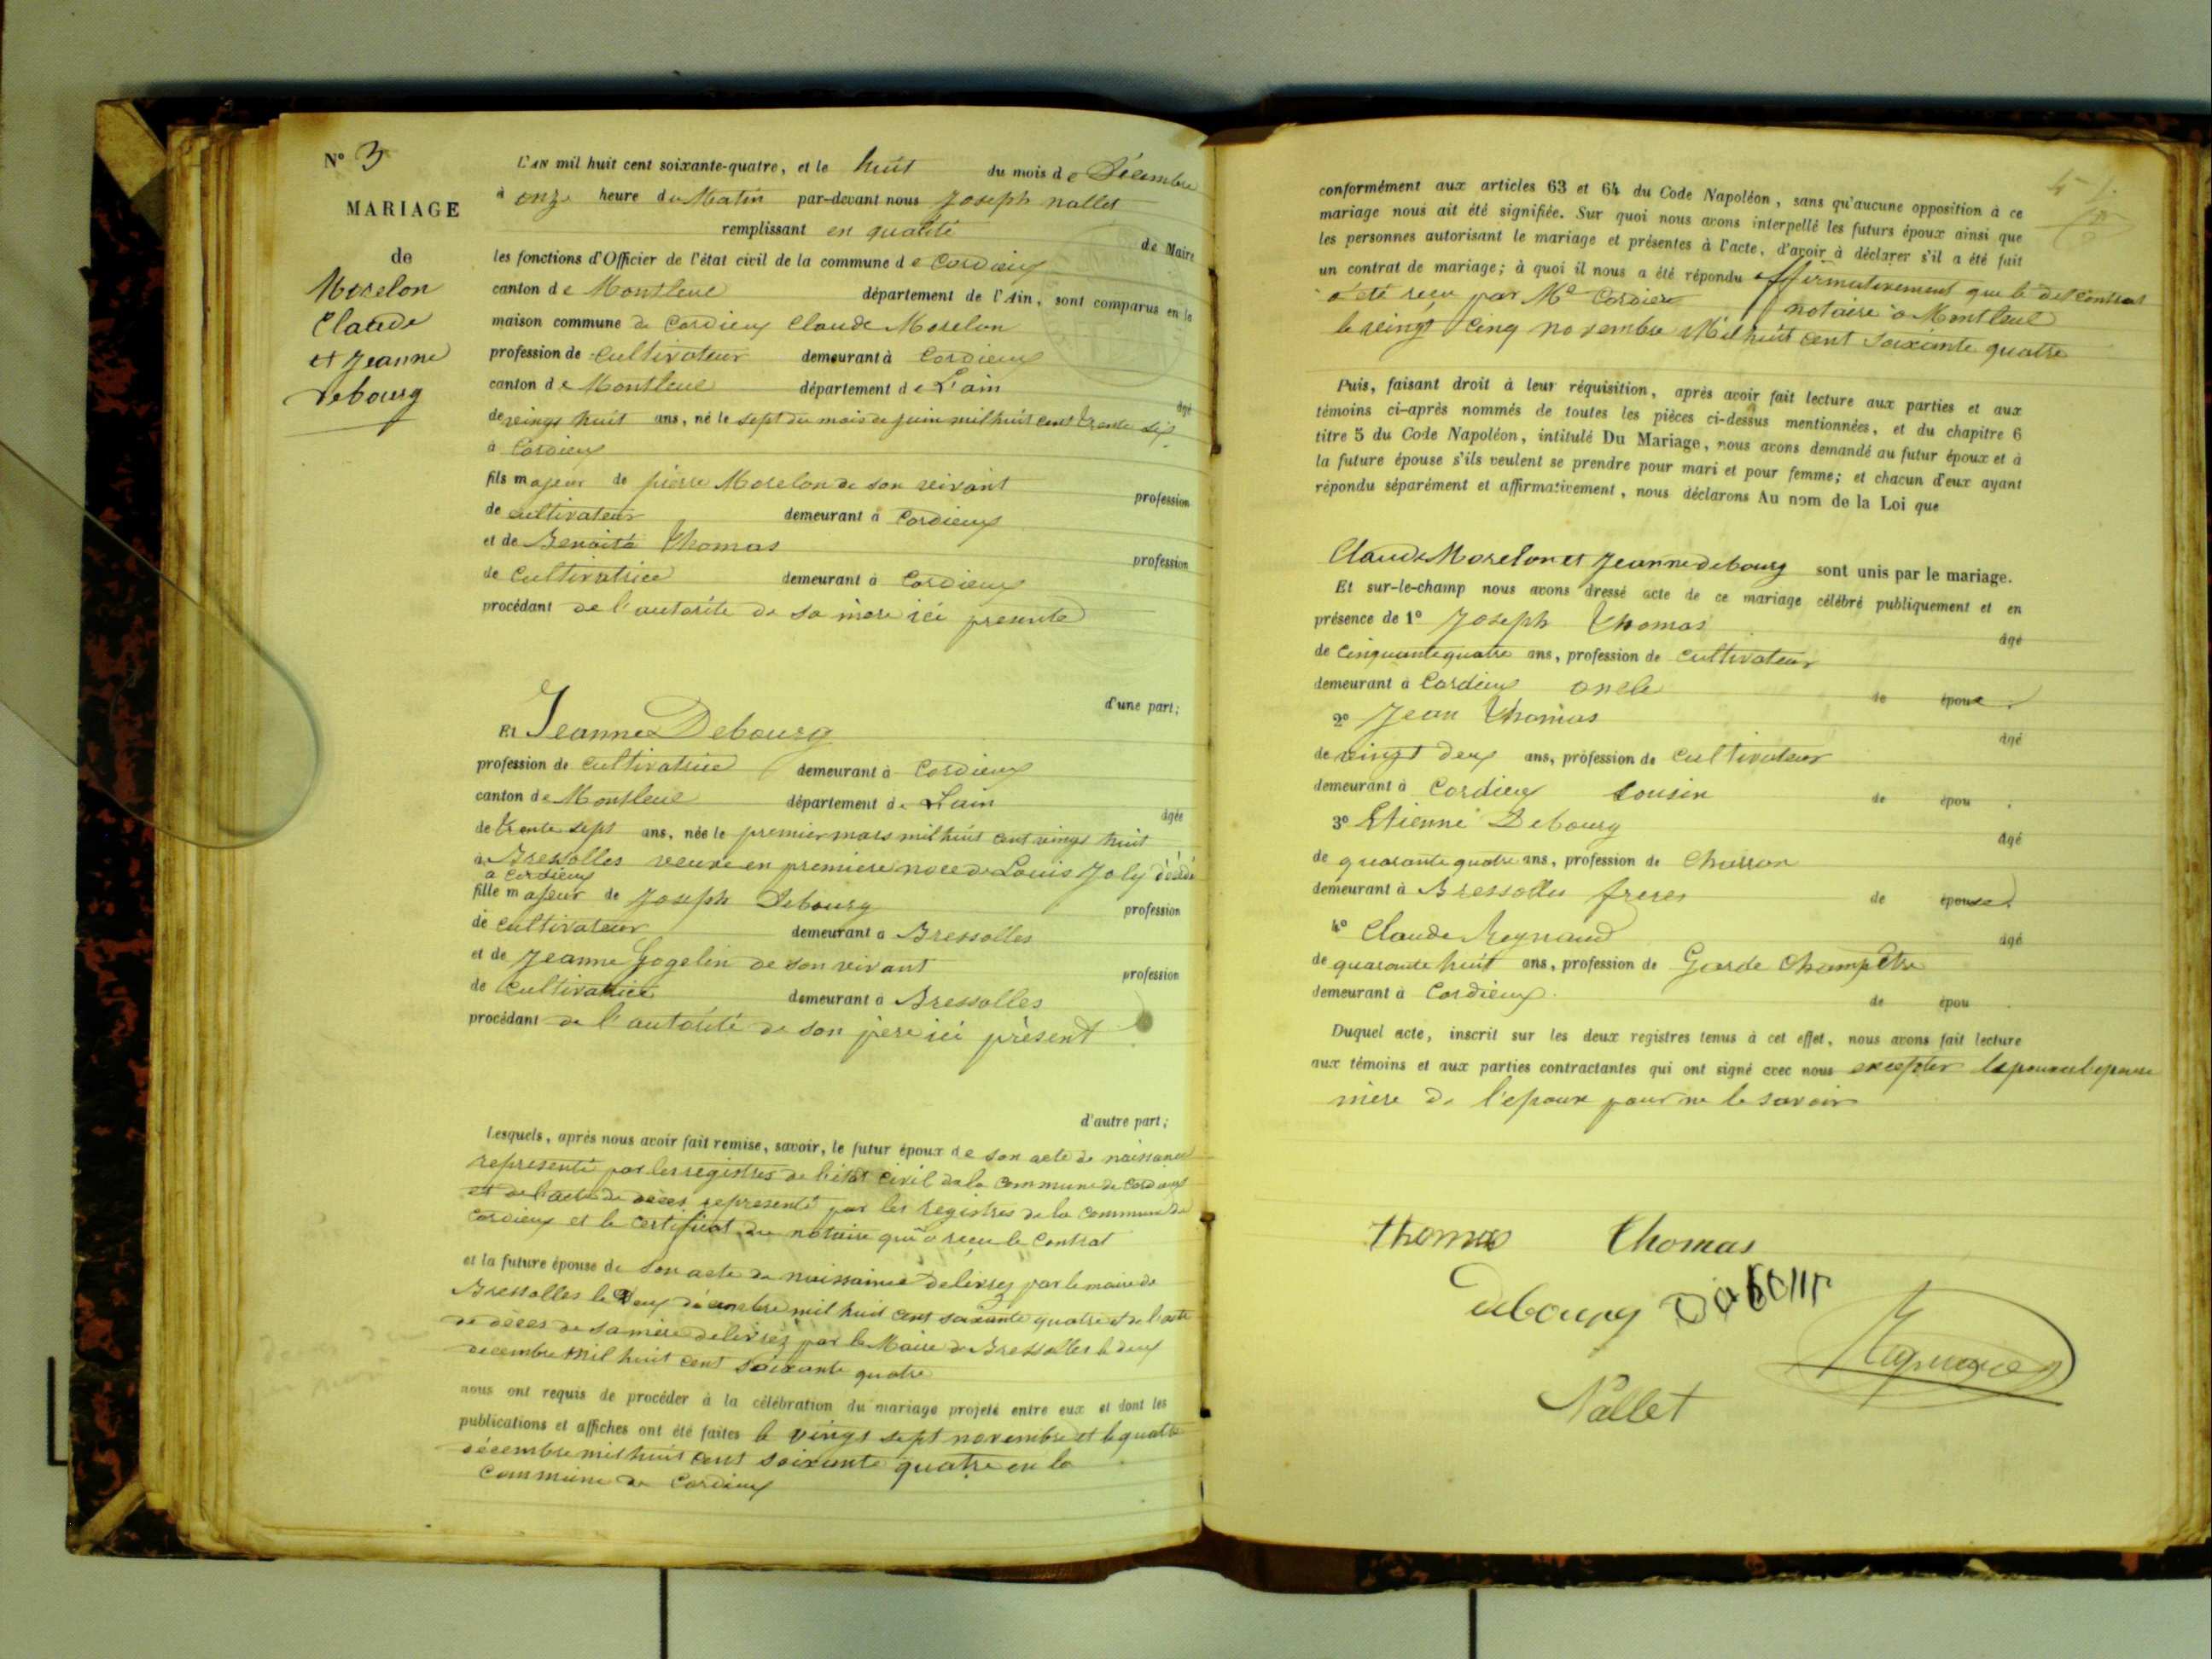 N° 3
MARIAGE
de
Morelon
Claude
et Jeanne
Debourg
L'AN mil huit cent soixante-quatre, et le huit du mois de Décembre
à onze heure du Matin par-devant nous Joseph nallet
remplissant en qualité de Maire
les fonctions d'Officier de l'état civil de la commune de Cordieux
canton de Montluel département de l'Ain, sont comparus en la
maison commune de Cordieux Claude Morelon
profession de Cultivateur demeurant à Cordieux
canton de Montluel département de L'ain âgé
de vingt huit ans, né le sept du mois de juin mil huit cent trente six
à Cordieux
fils majeur de pierre Morelon de son vivant profession
de cultivateur demeurant à Cordieux
et de Benoité Thomas profession
de Cultivatrice demeurant à Cordieux
procédant de l'autorité de sa mère ici presente
d'une part;
Et Jeanne Debourg
profession de Cultivatrice demeurant à Cordieux
canton de Montluel département de Lain âgée
de trente sept ans, née le premier mars mil huit cent vingt huit
à Bressolles veuve en premiere noce de Louis Joly décédé
a Cordieux
fille majeur de Joseph Debourg profession
de cultivateur demeurant à Bressolles
et de Jeanne Gogelin de son vivant profession
de Cultivatrice demeurant à Bressolles
procédant de l'autorité de son père ici présent
d'autre part;
Lesquels, après nous avoir fait remise, savoir, le futur époux de son acte de naissance
représenté par les registres de l'état civil de la Commune de Cordieux
et de l'acte de décès représenté par les registres de la Commune de
Cordieux et le Certificat du notaire qui a recu le Contrat
et la future épouse de son acte de naissance delivrez par le maire de
Bressolles le Deux décembre mil huit cent soixante quatre et de l'acte
de dèces de sa mère delivrez par le Maire de Bressolles le deux
decembre mil huit cent soixante quatre
nous ont requis de procéder à la célébration du mariage projeté entre eux et dont les
publications et affiches ont été faites le vingt sept novembre et le quatre
décembre mil huit cent soixante quatre en la
Commune de Cordieux
conformément aux articles 63 et 64 du Code Napoléon, sans qu'aucune opposition à ce
mariage nous ait été signifiée. Sur quoi nous avons interpellé les futurs époux ainsi que
les personnes autorisant le mariage et présentes à l'acte, d'avoir à déclarer s'il a été fait
un contrat de mariage; à quoi il nous a été répondu affirmativement que le dit Contrat
a été recu par Me Cordier notaire à Montluel
le vingt cinq novembre Mil huit cent Soixante quatre
Puis, faisant droit à leur réquisition, après avoir fait lecture aux parties et aux
témoins ci-après nommés de toutes les pièces ci-dessus mentionnées, et du chapitre 6
titre 5 du Code Napoléon, intitulé Du Mariage, nous avons demandé au futur époux et à
la future épouse s'ils veulent se prendre pour mari et pour femme; et chacun d'eux ayant
répondu séparément et affirmativement, nous déclarons Au nom de la Loi que
Claude Morelon et Jeanne debourg sont unis par le mariage.
Et sur-le-champ nous avons dressé acte de ce mariage célébré publiquement et en
présence de 1° Joseph Thomas âgé
de Cinquante quatre ans, profession de Cultivateur
demeurant à Cordieux oncle de époux.
2° Jean Thomas âgé
de vingt deux ans, profession de Cultivateur
demeurant à Cordieux Cousin de épou .
3° Etienne Debourg âgé
de quarante quatre ans, profession de Charron
demeurant à Bressolles freres de épouse.
4° Claude Reynaud âgé
de quarante huit ans, profession de Garde Champêtre
demeurant à Cordieux de épou .
Duquel acte, inscrit sur les deux registres tenus à cet effet, nous avons fait lecture
aux témoins et aux parties contractantes qui ont signé avec nous excepter
mère de l'epoux pour ne le savoir
thomas Thomas
debourg
Nallet